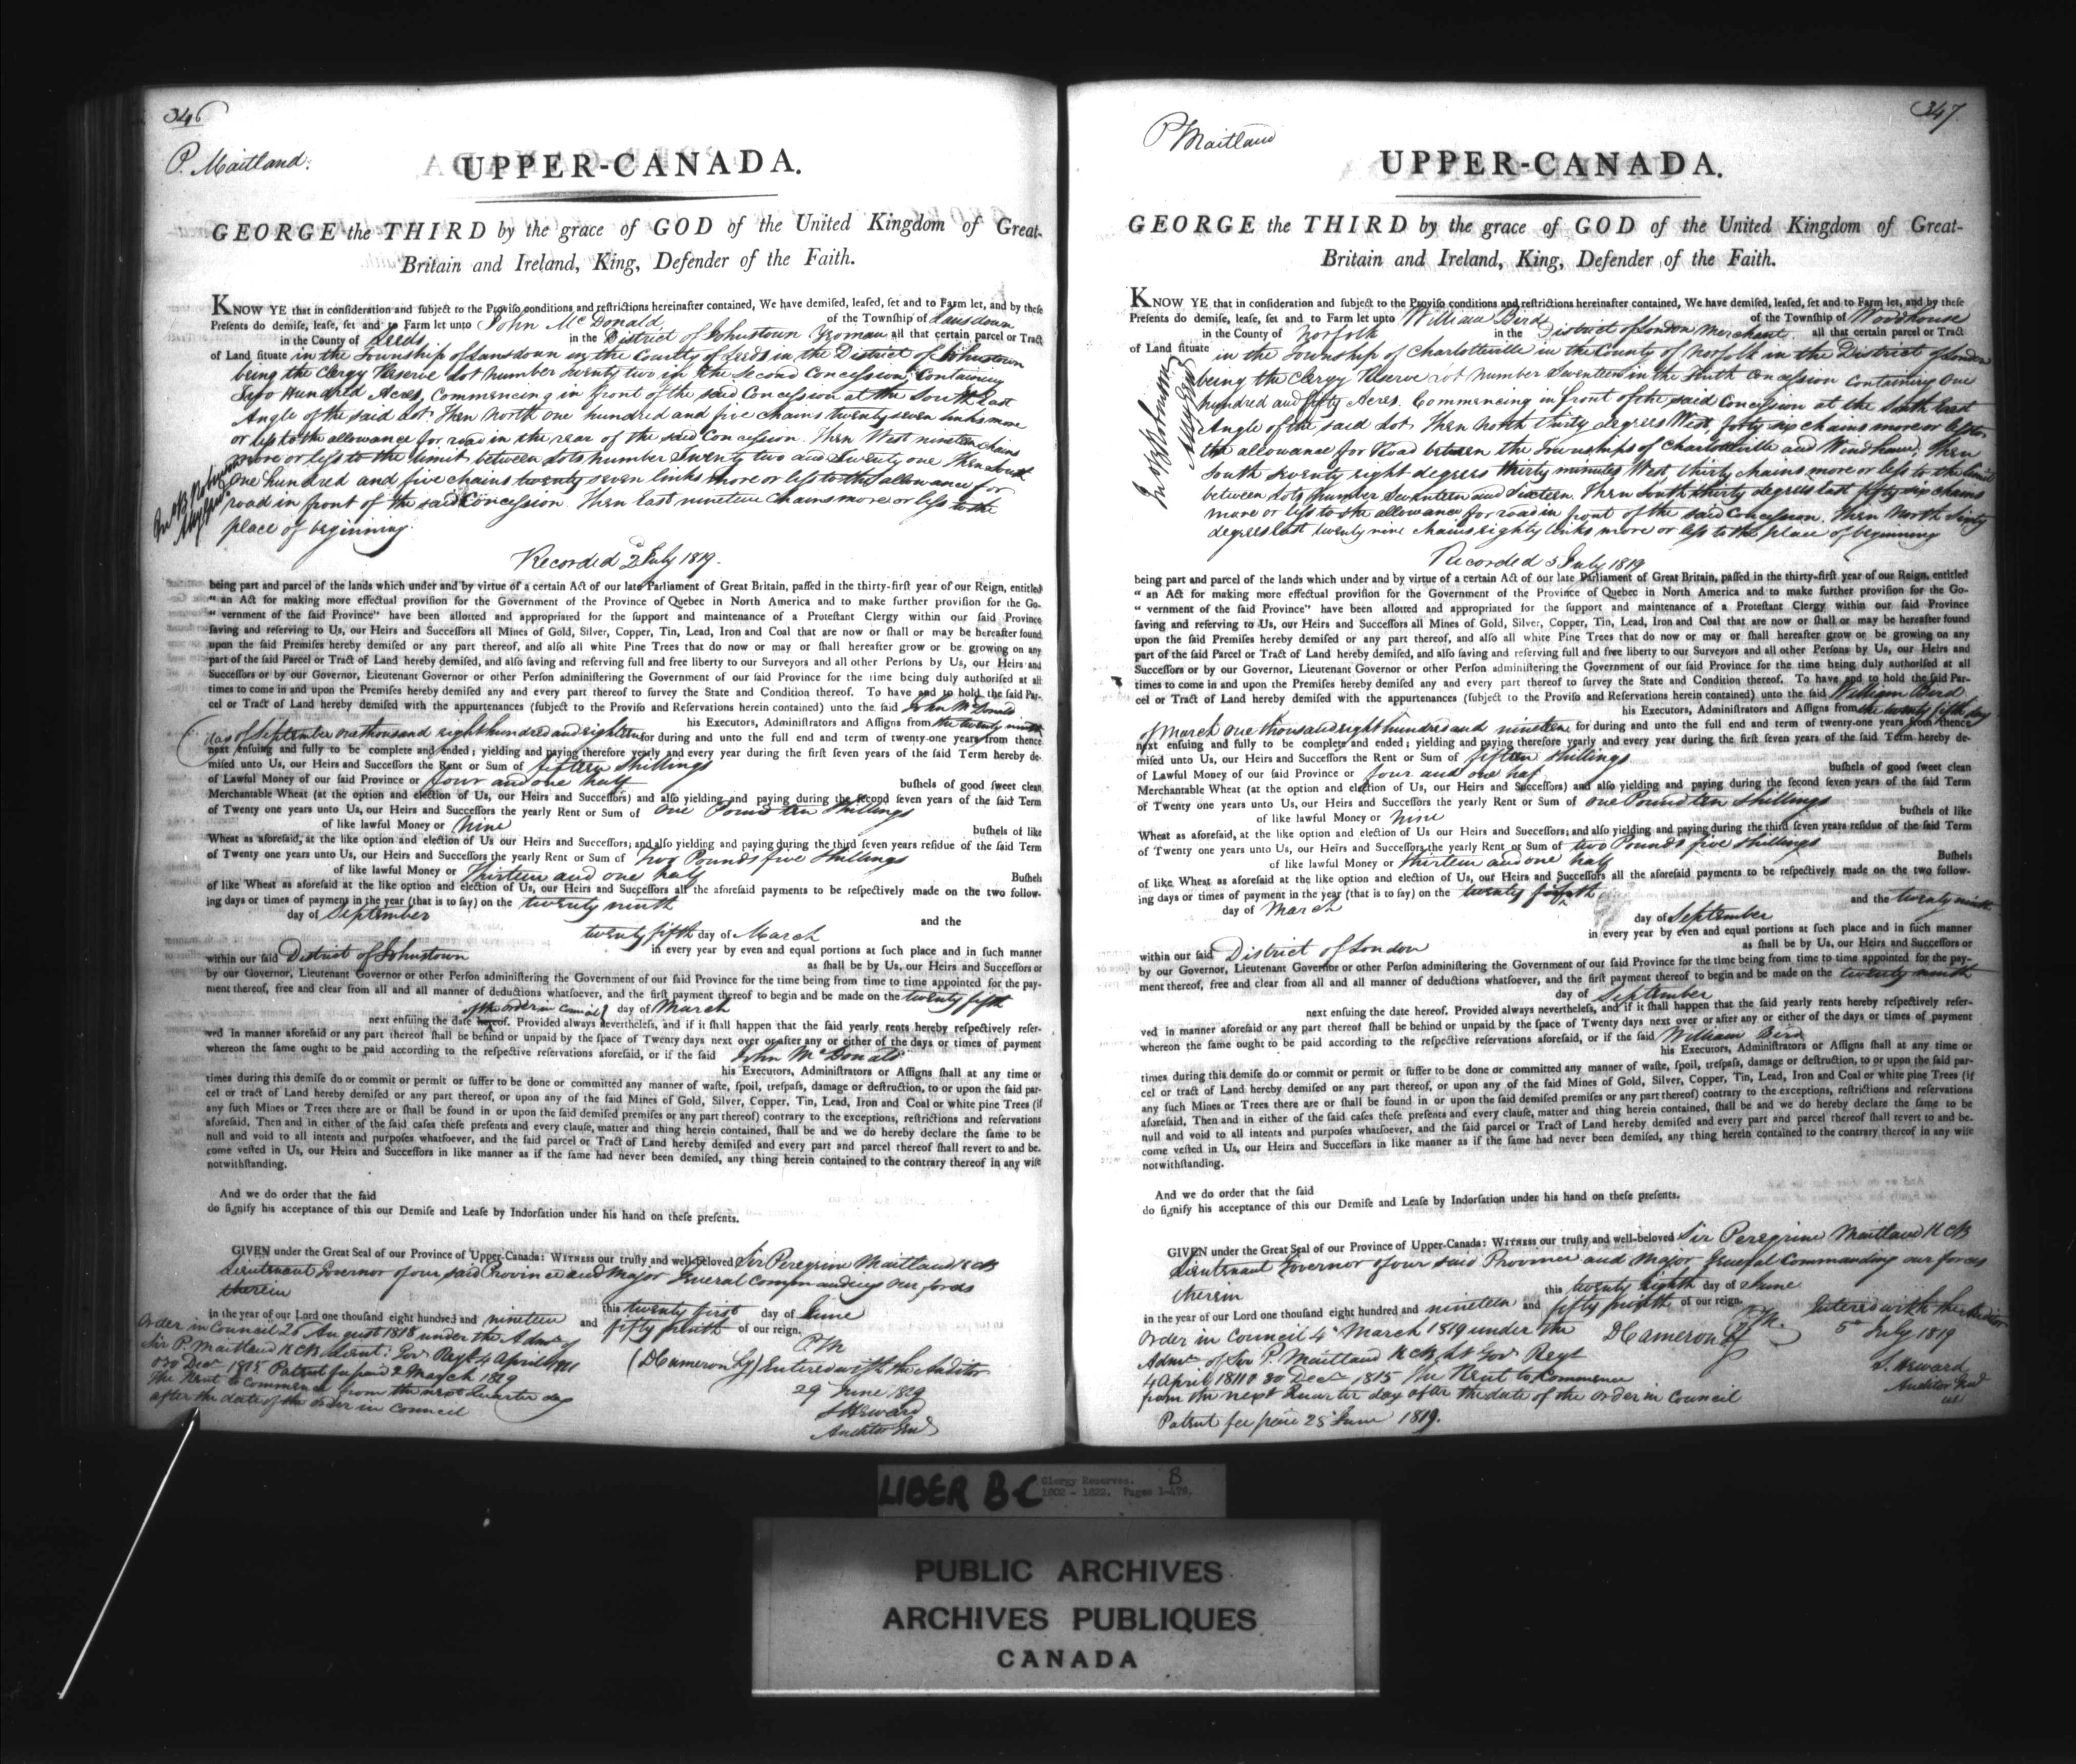 346
P. Maitland.
UPPER-CANADA.
GEORGE the THIRD by the grace of GOD of the United Kingdom of Great-
Britain and Ireland, King, Defender of the Faith.
KNOW YE that in consideration and subject to the Proviso conditions and restrictions hereinafter contained, We have demised, leased, set and to Farm let, and by these
Presents do demise, lease, set and to Farm let unto John McDonald of the Township of Lansdown
in the County of Leeds in the District of Johnstown Yeoman all that certain parcel or Tract
of Land situate in the Township of Lansdown in the County of Leeds in the District of Johnstown
being the Clergy Reserve Lot Number Twenty two in the Second Concession Containing
Two Hundred Acres, Commencing in front of the said Concession at the South East
Angle of the said Lot. Then North one hundred and five chains twenty seven links more
or less to the allowance for road in the rear of the said Concession. Then West nineteen chains
more or less to the limit between Lots number Twenty two and Twenty one Then South
One hundred and five chains twenty seven links more or less to the allowance for
road in front of the said Concession. Then East nineteen chains more or less to the
place of beginning.
Recorded 2d July 1819.
being part and parcel of the lands which under and by virtue of a certain Act of our late Parliament of Great Britain, passed in the thirty-first year of our Reign, entitled
“ an Act for making more effectual provision for the Government of the Province of Quebec in North America and to make further provision for the Go-
“ vernment of the said Province” have been allotted and appropriated for the support and maintenance of a Protestant Clergy within our said Province
saving and reserving to Us, our Heirs and Successors all Mines of Gold, Silver, Copper, Tin, Lead, Iron and Coal that are now or shall or may be hereafter found
upon the said Premises hereby demised or any part thereof, and also all white Pine Trees that do now or may or shall hereafter grow or be growing on any
part of the said Parcel or Tract of Land hereby demised, and also saving and reserving full and free liberty to our Surveyors and all other Persons by Us, our Heirs and
Successors or by our Governor, Lieutenant Governor or other Person administering the Government of our said Province for the time being duly authorised at all
times to come in and upon the Premises hereby demised any and every part thereof to survey the State and Condition thereof. To have and to hold the said Par-
cel or Tract of Land hereby demised with the appurtenances (subject to the Proviso and Reservations herein contained) unto the said John McDonald
his Executors, Administrators and Assigns from the twenty ninth
day of September one thousand eight hundred and eighteen for during and unto the full end and term of twenty-one years from thence
next ensuing and fully to be complete and ended; yielding and paying therefore yearly and every year during the first seven years of the said Term hereby de-
mised unto Us, our Heirs and Successors the Rent or Sum of fifteen Shillings
of Lawful Money of our said Province or four and one half bushels of good sweet clean
Merchantable Wheat (at the option and election of Us, our Heirs and Successors) and also yielding and paying during the second seven years of the said Term
of Twenty one years unto Us, our Heirs and Successors the yearly Rent or Sum of One Pound ten Shillings
of like lawful Money or Nine bushels of like
Wheat as aforesaid, at the like option and election of Us our Heirs and Successors; and also yielding and paying during the third seven years residue of the said Term
of Twenty one years unto Us, our Heirs and Successors the yearly Rent or Sum of Two Pounds five Shillings
of like lawful Money or Thirteen and one half Bushels
of like Wheat as aforesaid at the like option and election of Us, our Heirs and Successors all the aforesaid payments to be respectively made on the two follow-
ing days or times of payment in the year (that is to say) on the twenty ninth
day of September and the
twenty fifth day of March
in every year by even and equal portions at such place and in such manner
within our said District of Johnstown as shall be by Us, our Heirs and Successors or
by our Governor, Lieutenant Governor or other Person administering the Government of our said Province for the time being from time to time appointed for the pay-
ment thereof, free and clear from all and all manner of deductions whatsoever, and the first payment thereof to begin and be made on the twenty fifth
of the order in Council day of March
next ensuing the date hereof. Provided always nevertheless, and if it shall happen that the said yearly rents hereby respectively reser-
ved in manner aforesaid or any part thereof shall be behind or unpaid by the space of Twenty days next over or after any or either of the days or times of payment
whereon the same ought to be paid according to the respective reservations aforesaid, or if the said John McDonald
his Executors, Administrators or Assigns shall at any time or
times during this demise do or commit or permit or suffer to be done or committed any manner of waste, spoil, trespass, damage or destruction, to or upon the said par-
cel or tract of Land hereby demised or any part thereof, or upon any of the said Mines of Gold, Silver, Copper, Tin, Lead, Iron and Coal or white pine Trees (if
any such Mines or Trees there are or shall be found in or upon the said demised premises or any part thereof) contrary to the exceptions, restrictions and reservations
aforesaid, Then and in either of the said cases these presents and every clause, matter and thing herein contained, shall be and we do hereby declare the same to be
null and void to all intents and purposes whatsoever, and the said parcel or Tract of Land hereby demised and every part and parcel thereof shall revert to and be-
come vested in Us, our Heirs and Successors in like manner as if the same had never been demised, any thing herein contained to the contrary thereof in any wise
notwithstanding.
And we do order that the said
do signify his acceptance of this our Demise and Lease by Indorsation under his hand on these presents.
GIVEN under the Great Seal of our Province of Upper-Canada: WITNESS our trusty and well-beloved Sir Peregrine Maitland KCB
Lieutenant Governor of our said Province and Major General Commanding our forces
therein
this twenty first day of June
in the year of our Lord one thousand eight hundred and nineteen and fifty ninth of our reign.
Order in Council 26 August 1818 under the Admn of
Sir P. Maitland KCB Lieut: Gov. Regt 4 April 1811
& 30 Decr 1815 Patent fee paid 2 March 1819
The Rent to Commence from the next Quarter day
after the date of the order in Council
P.M
(D Cameron Sy) Entered with the Auditor
29 June 1819
S Heward
Auditor Genl
347
P Maitland
UPPER-CANADA.
GEORGE the THIRD by the grace of GOD of the United Kingdom of Great-
Britain and Ireland, King, Defender of the Faith.
KNOW YE that in consideration and subject to the Proviso conditions and restrictions hereinafter contained, We have demised, leased, set and to Farm let, and by these
Presents do demise, lease, set and to Farm let unto William Bird of the Township of Woodhouse
in the County of Norfolk in the District of London Merchant all that certain parcel or Tract
of Land situate in the Township of Charlotteville in the County of Norfolk in the District of London
being the Clergy Reserve Lot Number Seventeen in the Tenth Concession Containing One
hundred and fifty Acres. Commencing in front of the said Concession at the South East
Angle of the said Lot. Then North thirty degrees West, forty six chains more or less to
the allowance for Road between the Townships of Charlotteville and Windham. Then
South seventy eight degrees thirty minutes West, thirty chains more or less to the limit
between Lots Number Seventeen and Sixteen. Then South thirty degrees East fifty six chains
more or less to the allowance for road in front of the said Concession. Then North Sixty
degrees East twenty nine chains eighty links more or less to the place of beginning
Recorded 5 July 1819
being part and parcel of the lands which under and by virtue of a certain Act of our late Parliament of Great Britain, passed in the thirty-first year of our Reign, entitled
“ an Act for making more effectual provision for the Government of the Province of Quebec in North America and to make further provision for the Go-
“ vernment of the said Province” have been allotted and appropriated for the support and maintenance of a Protestant Clergy within our said Province
saving and reserving to Us, our Heirs and Successors all Mines of Gold, Silver, Copper, Tin, Lead, Iron and Coal that are now or shall or may be hereafter found
upon the said Premises hereby demised or any part thereof, and also all white Pine Trees that do now or may or shall hereafter grow or be growing on any
part of the said Parcel or Tract of Land hereby demised, and also saving and reserving full and free liberty to our Surveyors and all other Persons by Us, our Heirs and
Successors or by our Governor, Lieutenant Governor or other Person administering the Government of our said Province for the time being duly authorised at all
times to come in and upon the Premises hereby demised any and every part thereof to survey the State and Condition thereof. To have and to hold the said Par-
cel or Tract of Land hereby demised with the appurtenances (subject to the Proviso and Reservations herein contained) unto the said William Bird
his Executors, Administrators and Assigns from the twenty fifth day
of March One thousand eight hundred and nineteen for during and unto the full end and term of twenty-one years from thence
next ensuing and fully to be complete and ended; yielding and paying therefore yearly and every year during the first seven years of the said Term hereby de-
mised unto Us, our Heirs and Successors the Rent or Sum of fifteen Shillings
of Lawful Money of our said Province or four and one half bushels of good sweet clean
Merchantable Wheat (at the option and election of Us, our Heirs and Successors) and also yielding and paying during the second seven years of the said Term
of Twenty one years unto Us, our Heirs and Successors the yearly Rent or Sum of One Pound ten Shillings
of like lawful Money or Nine bushels of like
Wheat as aforesaid, at the like option and election of Us our Heirs and Successors; and also yielding and paying during the third seven years residue of the said Term
of Twenty one years unto Us, our Heirs and Successors the yearly Rent or Sum of two Pounds five Shillings
of like lawful Money or thirteen and one half Bushels
of like Wheat as aforesaid at the like option and election of Us, our Heirs and Successors all the aforesaid payments to be respectively made on the two follow-
ing days or times of payment in the year (that is to say) on the twenty fifth
day of March and the twenty ninth
day of September
in every year by even and equal portions at such place and in such manner
within our said District of London as shall be by Us, our Heirs and Successors or
by our Governor, Lieutenant Governor or other Person administering the Government of our said Province for the time being from time to time appointed for the pay-
ment thereof, free and clear from all and all manner of deductions whatsoever, and the first payment thereof to begin and be made on the twenty ninth
day of September
next ensuing the date hereof. Provided always nevertheless, and if it shall happen that the said yearly rents hereby respectively reser-
ved in manner aforesaid or any part thereof shall be behind or unpaid by the space of Twenty days next over or after any or either of the days or times of payment
whereon the same ought to be paid according to the respective reservations aforesaid, or if the said William Bird
his Executors, Administrators or Assigns shall at any time or
times during this demise do or commit or permit or suffer to be done or committed any manner of waste, spoil, trespass, damage or destruction, to or upon the said par-
cel or tract of Land hereby demised or any part thereof, or upon any of the said Mines of Gold, Silver, Copper, Tin, Lead, Iron and Coal or white pine Trees (if
any such Mines or Trees there are or shall be found in or upon the said demised premises or any part thereof) contrary to the exceptions, restrictions and reservations
aforesaid, Then and in either of the said cases these presents and every clause, matter and thing herein contained, shall be and we do hereby declare the same to be
null and void to all intents and purposes whatsoever, and the said parcel or Tract of Land hereby demised and every part and parcel thereof shall revert to and be-
come vested in Us, our Heirs and Successors in like manner as if the same had never been demised, any thing herein contained to the contrary thereof in any wise
notwithstanding.
And we do order that the said
do signify his acceptance of this our Demise and Lease by Indorsation under his hand on these presents.
GIVEN under the Great Seal of our Province of Upper-Canada: WITNESS our trusty and well-beloved Sir Peregrine Maitland KCB
Lieutenant Governor of our said Province and Major General Commanding our forces
therein
this twenty eighth day of June
in the year of our Lord one thousand eight hundred and nineteen and fifty ninth of our reign.
Order in Council 4 March 1819 under the
Admn of Sir P. Maitland KCB Lt Govr Regt
4 April 1811 & 30 Decr 1815 The Rent to Commence
from the next Quarter day after the date of the order in Council
Patent fee paid 25 June 1819.
P.M.
D Cameron Sy
Entered with the Auditor
5th July 1819
S. Heward
Auditor Genl
LIBER B-C
Clergy Reserves. B
1802 - 1822. Pages 1-478.
PUBLIC ARCHIVES
ARCHIVES PUBLIQUES
CANADA